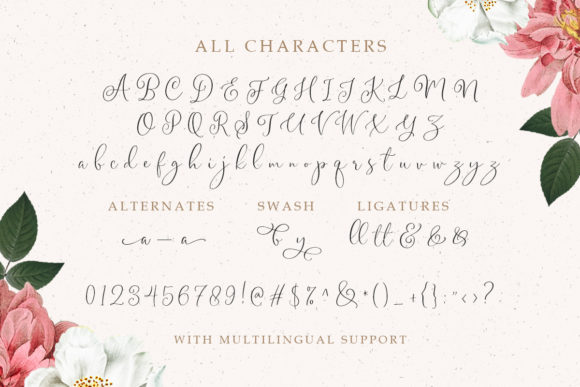 ALL CHARACTERS
A B C D E F G H I J K L M N
O P Q R S T U V W X Y Z
a b c d e f g h i j k l m n o p q r s t u v w x y z y z
ALTERNATES SWASH LIGATURES
a — a b y ll tt & & &
0 1 2 3 4 5 6 7 8 9 ! @ # $ % ^ & * ( ) _ + { } : " < > ?
WITH MULTILINGUAL SUPPORT